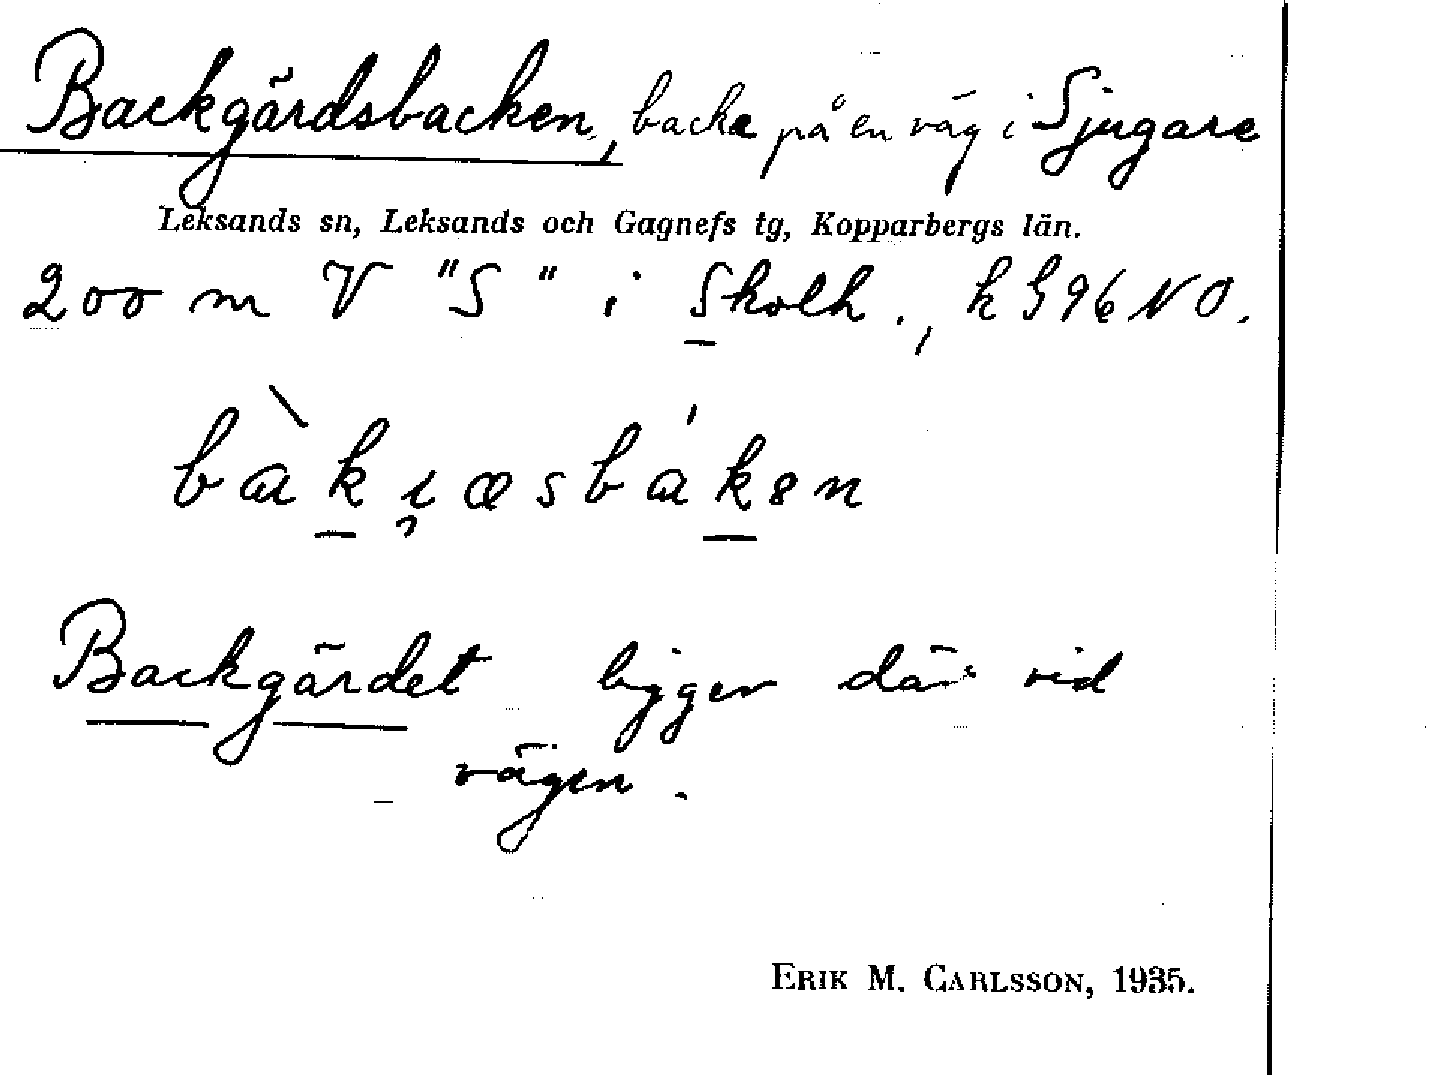 Backgärdsbacken, backe på en väg i Sjugare
Leksands sn, Leksands och Gagnefs tg, Kopparbergs län.
200 m V "S" i Skolh., k G 96 NO.
bàkıæsbákən
Backgärdet ligger där vid
vägen.
ERIK M. CARLSSON, 1935.